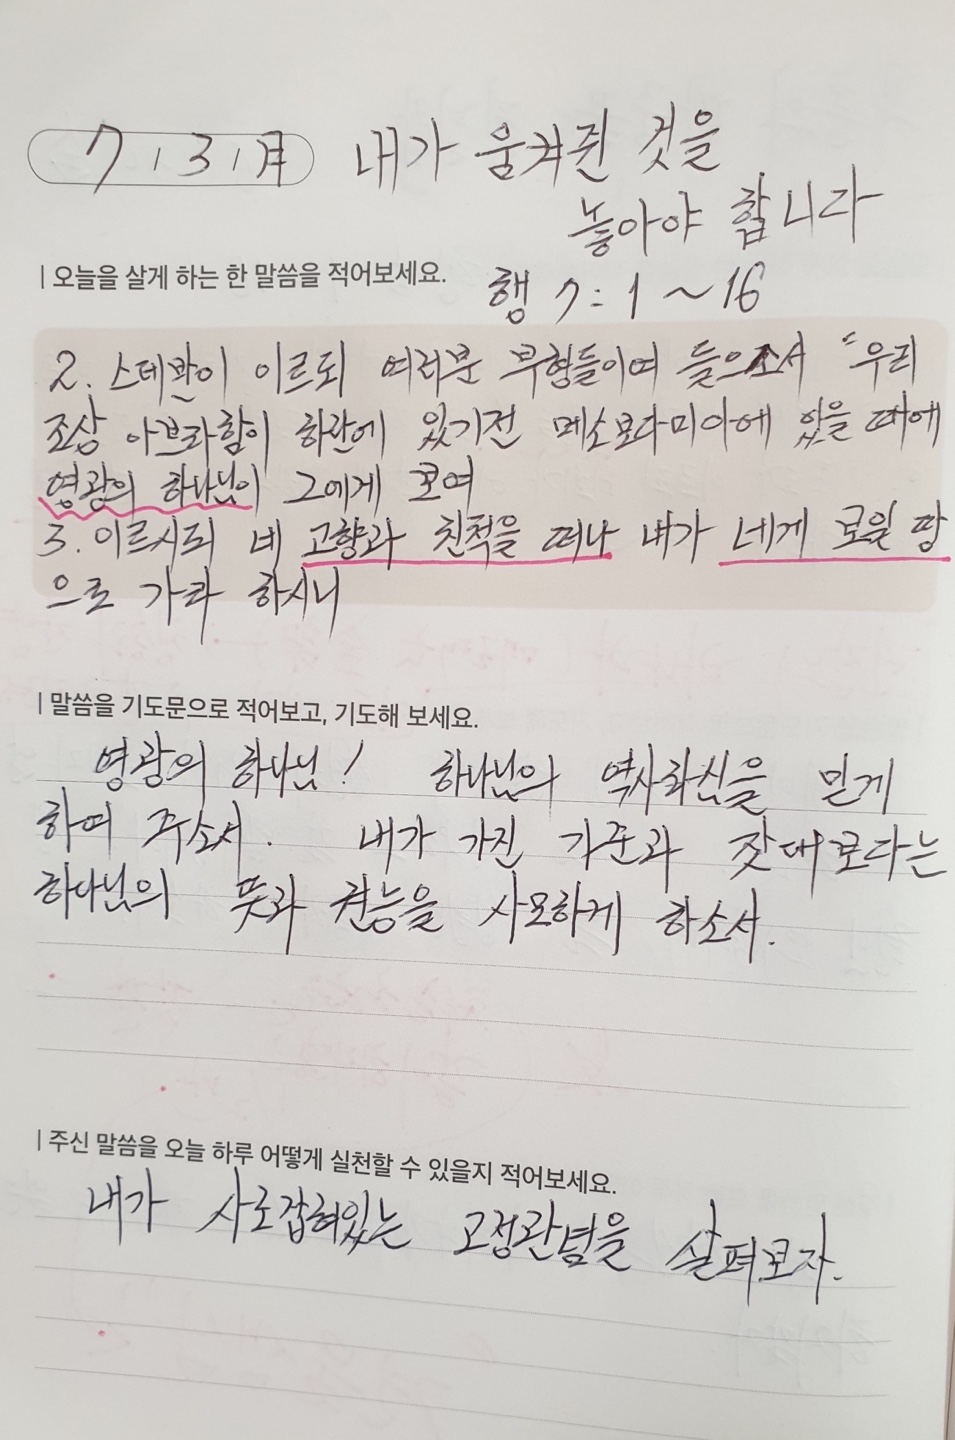 7 / 3 / 月 내가 움켜쥔 것을
놓아야 합니다
| 오늘을 살게 하는 한 말씀을 적어보세요.
행 7:1~16
2. 스데반이 이르되 여러분 부형들이여 들으소서 "우리
조상 아브라함이 하란에 있기전 메소보다미아에 있을 때에
영광의 하나님이 그에게 보여
3. 이르시되 네 고향과 친척을 떠나 내가 네게 보일 땅
으로 가라 하시니
| 말씀을 기도문으로 적어보고, 기도해 보세요.
영광의 하나님! 하나님의 역사하심을 믿게
하여 주소서. 내가 가진 기준과 잣대보다는
하나님의 뜻과 권능을 사모하게 하소서.
| 주신 말씀을 오늘 하루 어떻게 실천할 수 있을지 적어보세요.
내가 사로잡혀있는 고정관념을 살펴보자.